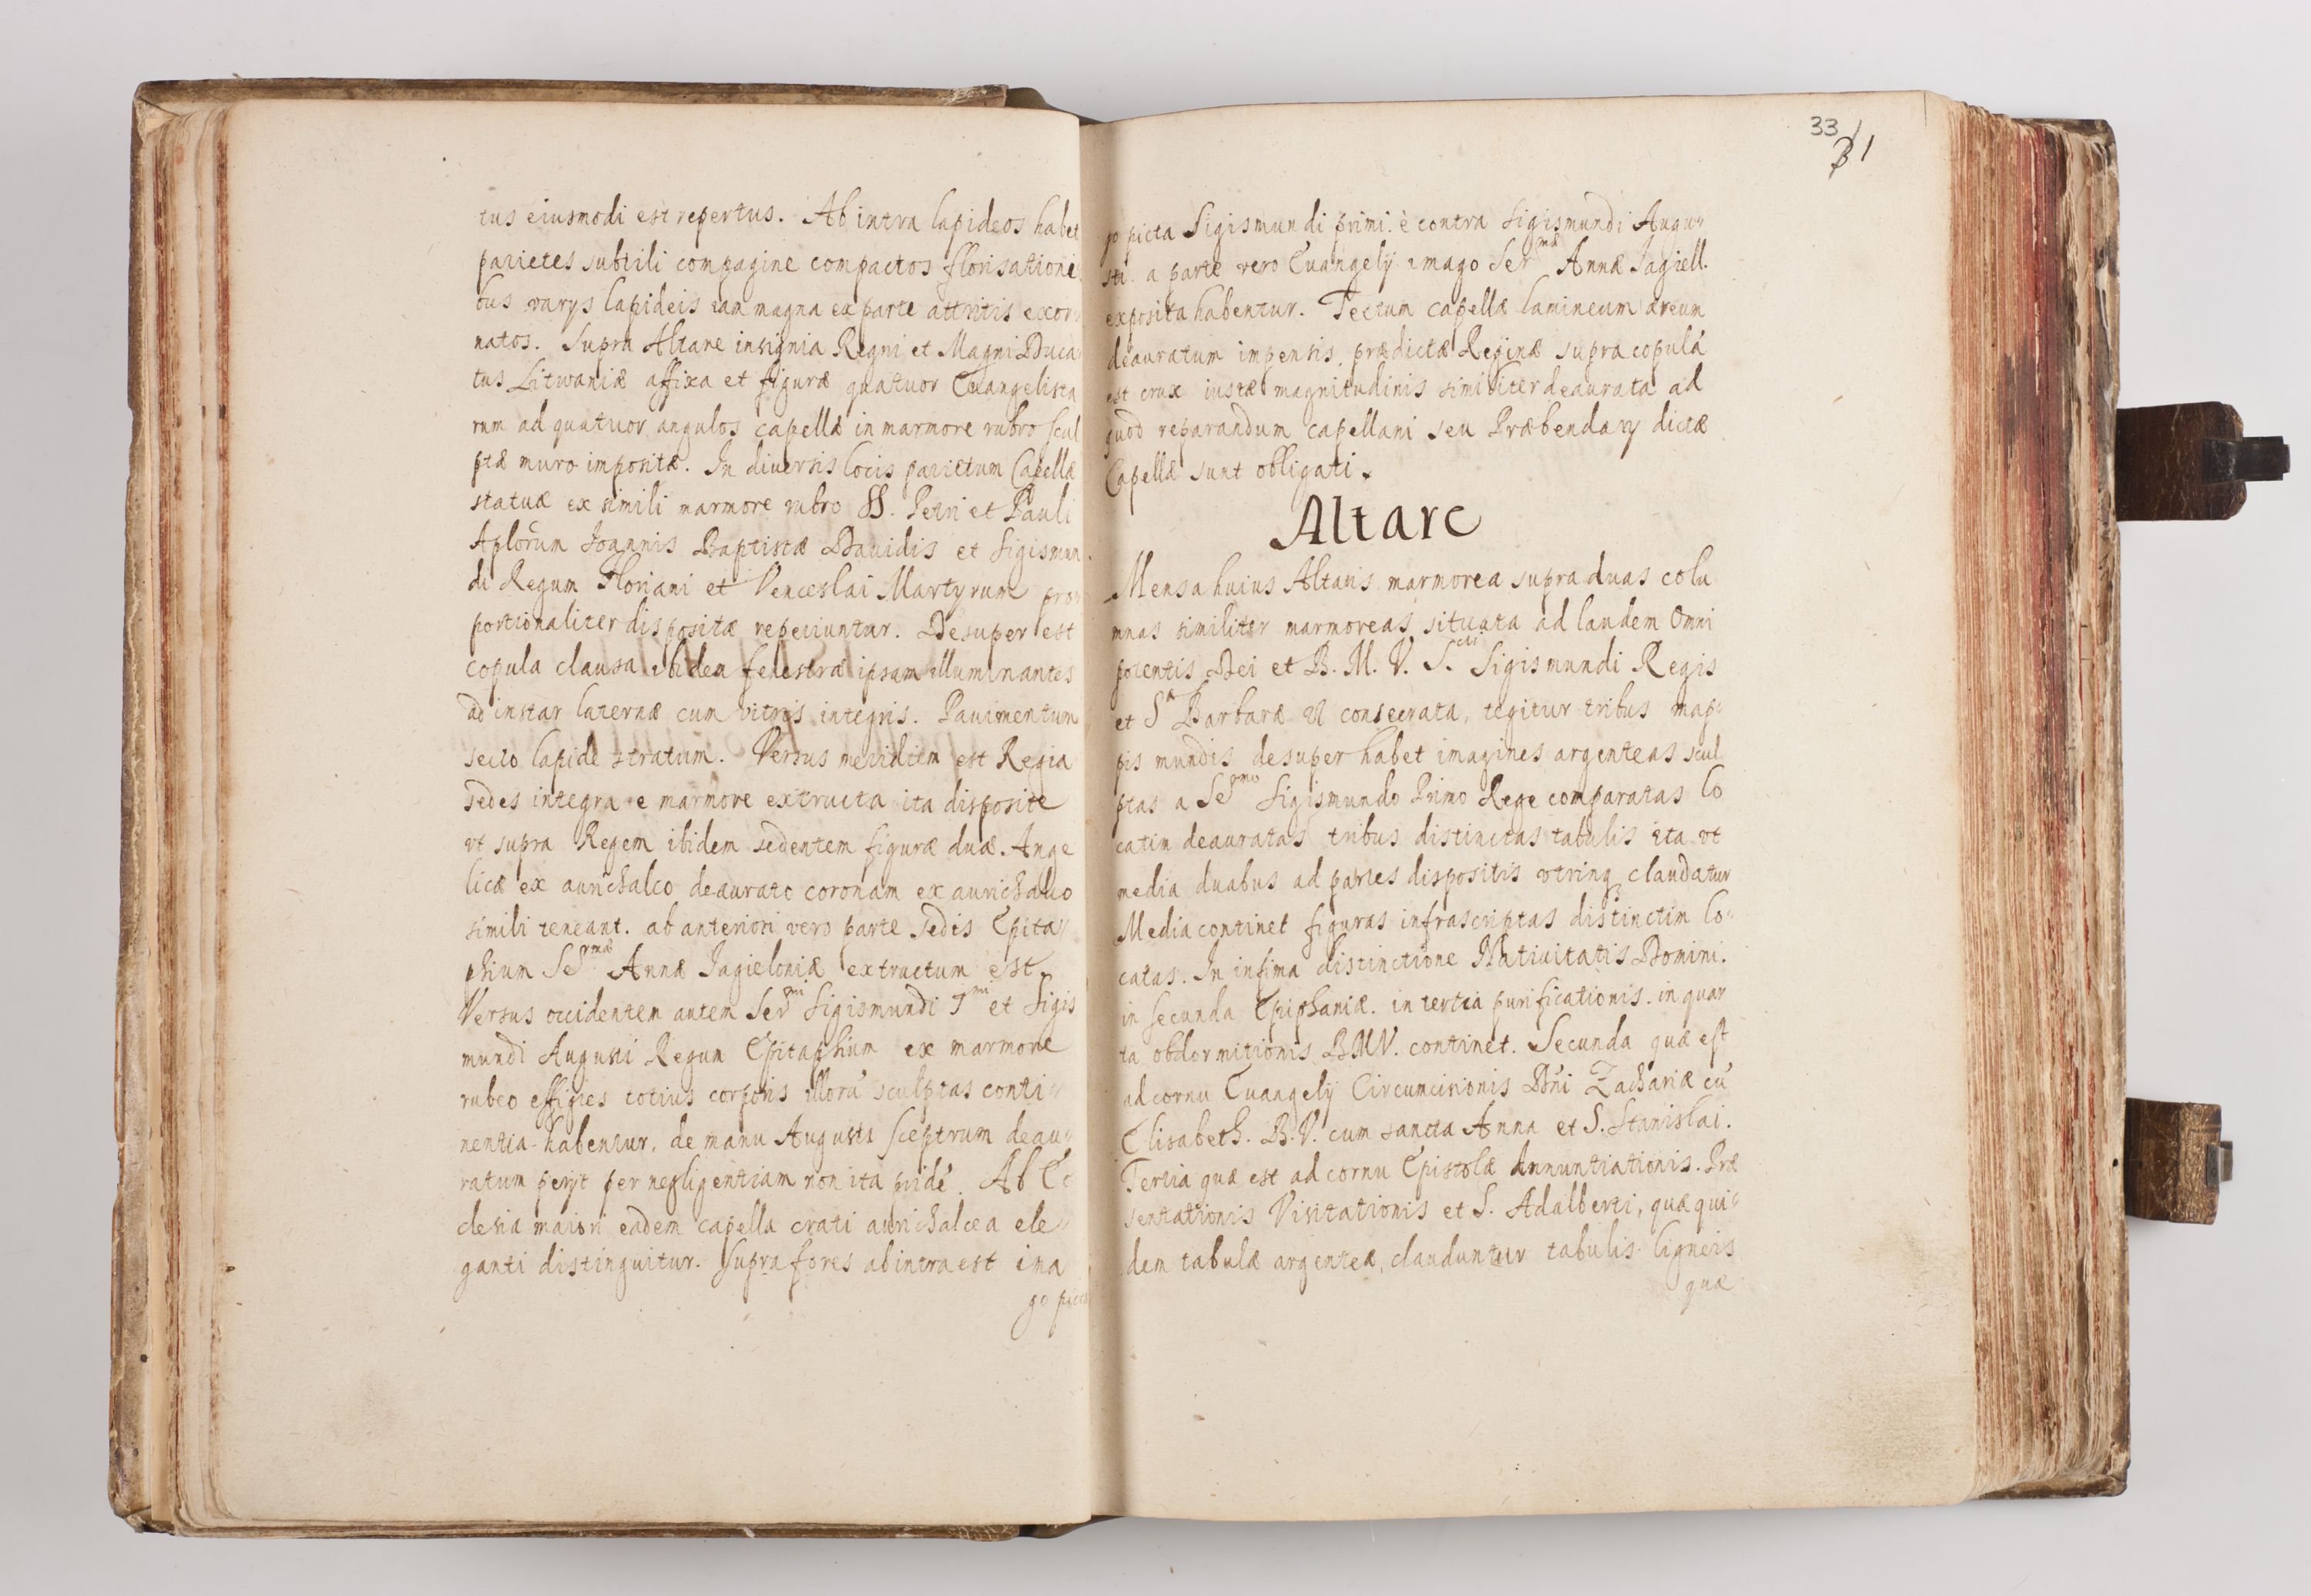 tus eiusmodi est repertus. Ab intra lapideos habet
parietes subtili compagine compactos florisatione
bus varys lapideis iam magna ex parte attritis exor
natos. Supra Altare insignia Regni et Magni Duca
tus Litwaniæ affixa et figuræ quatuor Euangelista
rum ad quatuor angulos capellæ in marmore rubro scul
ptæ muro impositæ. In diuersis locis parietum Capellæ
statuæ ex simili marmore rubro SS. Petri et Pauli
Aplōrum Joannis Baptistæ Dauidis et Sigismun
di Regum Floriani et Venceslai Martyrum pro
portionaliter dispositæ reperiuntur. Desuper est
copula clausa ibidem fenestræ ipsam illuminantes
ad instar laternæ cum vitris integris. Pauimentum
secto lapide stratum. Versus meridiem est Regia
sedes integra e marmore extructa ita disposite
vt supra Regem ibidem sedentem figuræ duæ Ange
licæ ex aurichalco deaurato coronam ex aurichalco
simili teneant. ab anteriori vero parte sedis Epita〃
phium Serᵐᵃᵉ Annæ Jagieloniæ extructum est.
Versus occidentem autem Serᵐⁱ Sigismundi Iᵐⁱ et Sigis
mundi Augusti Regum Epitaphium ex marmore
rubeo effigies totius corporis illorū sculptas conti〃
nentia habentur, de manu Augusti sceptrum deau〃
ratum perijt per negligentiam non ita pridē. Ab Ec
clesia maiori eadem capella crati aurichalcea ele〃
ganti distinguitur. Supra fores ab intra est ima
go picta
33
31
go picta Sigismundi primi. è contra Sigismundi Augu〃
sti. a parte vero Euangelij imago Serᵐᵃᵉ Annæ Jagiell.
exposita habentur. Tectum capellæ lamineum æreum
deauratum impensis prædictæ Reginæ supra copulā
est crux iustæ magnitudinis similiter deaurata ad
quod reparandum capellani seu Præbendarij dictæ
Capellæ sunt obligati.
Altare
Mensa huius Altaris marmorea supra duas colu
mnas similiter marmoreas situata ad laudem Omni
potentis Dei et B. M. V. S.ᶜᵗⁱ Sigismundi Regis
et Sᵃ Barbaræ consecrata, tegitur tribus map〃
pis mundis desuper habet imagines argenteas scul
ptas a Serᵐᵒ Sigismundo Primo Rege comparatas lo
catim deauratas tribus distinctas tabulis ita vt
media duabus ad partes dispositis vtrinq claudatur
Media continet figuras infrascriptas distinctim lo〃
catas. In infima distinctione Natiuitatis Domini.
in secunda Epiphaniæ. in tertia purificationis. in quar
ta obdormitionis BMV. continet. Secunda quæ est
ad cornu Euangelij Circumcisionis Dn̄i Zachariæ cū
Elisabeth. B.V. cum sancta Anna et S. Stanislai.
Tertia quæ est ad cornu Epistolæ Annuntiationis. Præ
sentationis Visitationis et S. Adalberti, quæ qui〃
dem tabulæ argenteæ, clauduntur tabulis ligneis
quæ